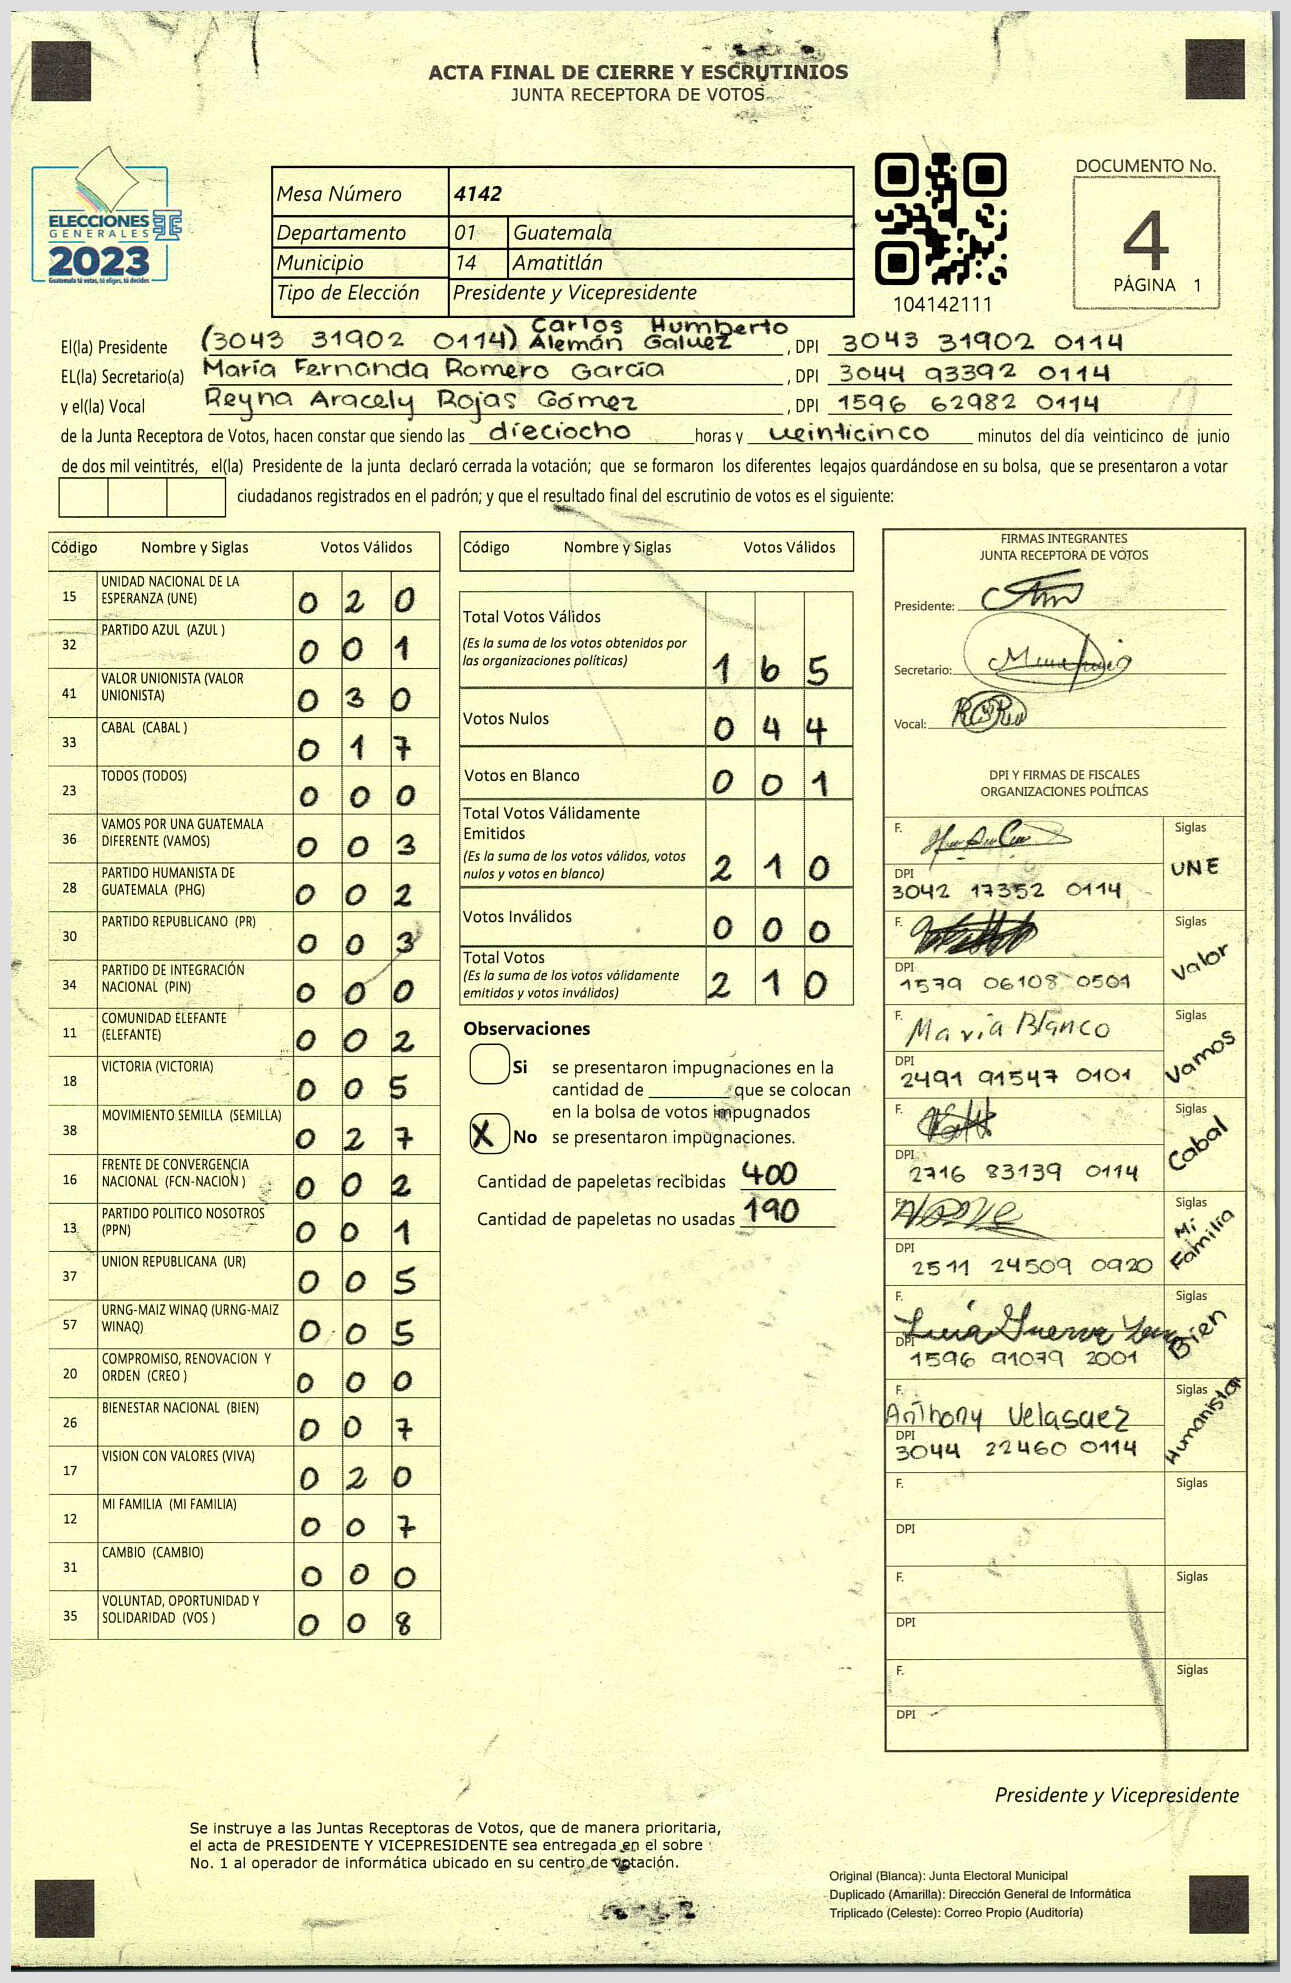 ACTA FINAL DE CIERRE Y ESCRUTINIOS
JUNTA RECEPTORA DE VOTOS
ELECCIONES
GENERALES
2023
Guatemala tú votas, tú eliges, tú decides
Mesa Número 4142
Departamento 01 Guatemala
Municipio 14 Amatitlán
Tipo de Elección Presidente y Vicepresidente
104142111
DOCUMENTO No.
4
PÁGINA 1
El(la) Presidente (3043 31902 0114) Carlos Humberto Alemán Galvez, DPI 3043 31902 0114
EL(la) Secretario(a) María Fernanda Romero García, DPI 3044 93392 0114
y el(la) Vocal Reyna Aracely Rojas Gómez, DPI 1596 62982 0114
de la Junta Receptora de Votos, hacen constar que siendo las dieciocho horas y veinticinco minutos del día veinticinco de junio
de dos mil veintitrés, el(la) Presidente de la junta declaró cerrada la votación; que se formaron los diferentes legajos guardándose en su bolsa, que se presentaron a votar
ciudadanos registrados en el padrón; y que el resultado final del escrutinio de votos es el siguiente:
Código Nombre y Siglas Votos Válidos
15 UNIDAD NACIONAL DE LA ESPERANZA (UNE) 0 2 0
32 PARTIDO AZUL (AZUL ) 0 0 1
41 VALOR UNIONISTA (VALOR UNIONISTA) 0 3 0
33 CABAL (CABAL ) 0 1 7
23 TODOS (TODOS) 0 0 0
36 VAMOS POR UNA GUATEMALA DIFERENTE (VAMOS) 0 0 3
28 PARTIDO HUMANISTA DE GUATEMALA (PHG) 0 0 2
30 PARTIDO REPUBLICANO (PR) 0 0 3
34 PARTIDO DE INTEGRACIÓN NACIONAL (PIN) 0 0 0
11 COMUNIDAD ELEFANTE (ELEFANTE) 0 0 2
18 VICTORIA (VICTORIA) 0 0 5
38 MOVIMIENTO SEMILLA (SEMILLA) 0 2 7
16 FRENTE DE CONVERGENCIA NACIONAL (FCN-NACION ) 0 0 2
13 PARTIDO POLITICO NOSOTROS (PPN) 0 0 1
37 UNION REPUBLICANA (UR) 0 0 5
57 URNG-MAIZ WINAQ (URNG-MAIZ WINAQ) 0 0 5
20 COMPROMISO, RENOVACION Y ORDEN (CREO ) 0 0 0
26 BIENESTAR NACIONAL (BIEN) 0 0 7
17 VISION CON VALORES (VIVA) 0 2 0
12 MI FAMILIA (MI FAMILIA) 0 0 7
31 CAMBIO (CAMBIO) 0 0 0
35 VOLUNTAD, OPORTUNIDAD Y SOLIDARIDAD (VOS ) 0 0 8
Código Nombre y Siglas Votos Válidos
Total Votos Válidos
(Es la suma de los votos obtenidos por
las organizaciones políticas) 1 6 5
Votos Nulos 0 4 4
Votos en Blanco 0 0 1
Total Votos Válidamente
Emitidos
(Es la suma de los votos válidos, votos
nulos y votos en blanco) 2 1 0
Votos Inválidos 0 0 0
Total Votos
(Es la suma de los votos válidamente
emitidos y votos inválidos) 2 1 0
Observaciones
Si se presentaron impugnaciones en la
cantidad de ________ que se colocan
en la bolsa de votos impugnados
X No se presentaron impugnaciones.
Cantidad de papeletas recibidas 400
Cantidad de papeletas no usadas 190
FIRMAS INTEGRANTES
JUNTA RECEPTORA DE VOTOS
Presidente:
Secretario:
Vocal:
DPI Y FIRMAS DE FISCALES
ORGANIZACIONES POLÍTICAS
F. Siglas UNE
DPI 3042 17352 0114
F. Siglas Valor
DPI 1579 06108 0501
F. María Blanco Siglas Vamos
DPI 2491 91547 0101
F. Siglas Cabal
DPI 2716 83139 0114
F. Siglas Mi Familia
DPI 2511 24509 0920
F. Siglas Bien
DPI 1596 91079 2001
F. Anthony Velasquez Siglas Humanista
DPI 3044 22460 0114
F. Siglas
DPI
F. Siglas
DPI
F. Siglas
DPI
Presidente y Vicepresidente
Se instruye a las Juntas Receptoras de Votos, que de manera prioritaria,
el acta de PRESIDENTE Y VICEPRESIDENTE sea entregada en el sobre
No. 1 al operador de informática ubicado en su centro de votación.
Original (Blanca): Junta Electoral Municipal
Duplicado (Amarilla): Dirección General de Informática
Triplicado (Celeste): Correo Propio (Auditoría)